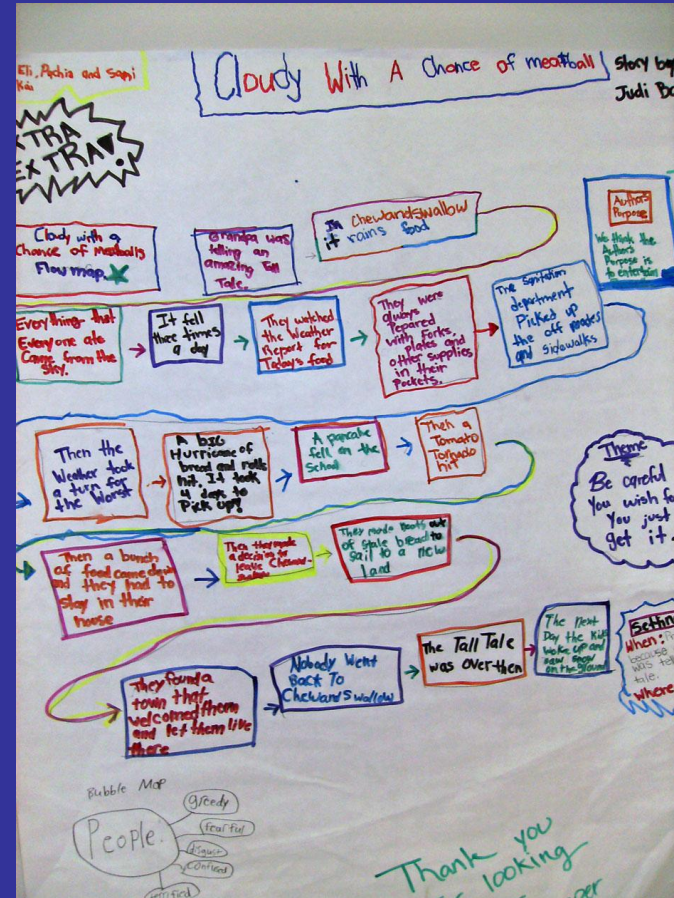 Eli, Archie and Sami
Kai
Cloudy With A Chance of meatball
Story by
Judi Ba
XTRA
EXTRA!
Clody with a
Chance of Meatballs
Flow map
Grandpa was
telling an
amazing Tall
Tale.
In chewandswallow
it rains food
Authors
Purpose
We think the
Authors
Purpose is
to entertain
Everything that
Everyone ate
Came from the
Sky.
It fell
three times
a day
They watched
the Weather
Report for
Todays food
They were
always
Pepared
with Forks,
plates and
other supplies
in their
Pockets.
The sanitation
department
Picked up
the off roades
and sidewalks
Then the
Weather took
a turn for
the Worst
A big
Hurricane of
bread and rolls
hit. It took
4 days to
Pick up!
A pancake
fell on the
School
Then a
Tomato
Tornado
hit
Theme
Be careful
You wish fo
You just
get it.
Then a bunch
of food came down
and they had to
stay in their
house
Then they made
a decision to
leave Chewand-
swallow
They made boats out
of stale bread to
sail to a new
land
They found a
town that
welcomed them
and let them live
there
Nobody Went
Back To
Chewandswallow
The Tall Tale
was over then
The Next
Day the Kids
woke up and
saw snow
on the ground
Settin
When:
because
was tell
tale.
Where
Bubble Map
People.
greedy
fearful
disgust
confused
terrified
Thank you
looking
per